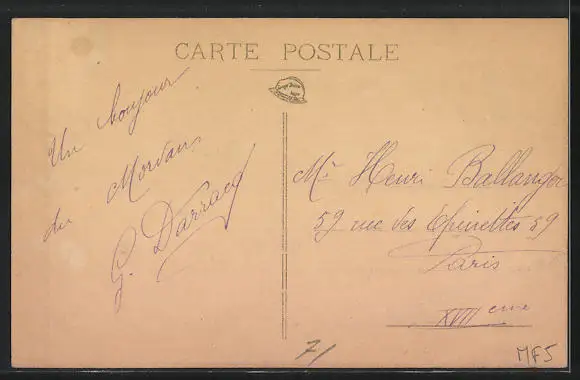 CARTE POSTALE
Un bonjour
du Morvan
G. Darracq
Mr Henri Ballanger
59 rue des Épinettes 59
Paris
XVIII eme
7/
MF5